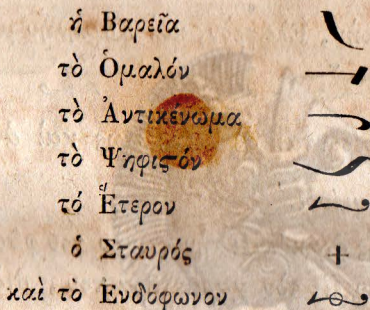 ἡ Βαρεῖα
τὸ Ὁμαλόν
τὸ Ἀντικένωμα
τὸ Ψηφιστόν
τό Ἕτερον
ὁ Σταυρός
καὶ τὸ Ενδόφωνον